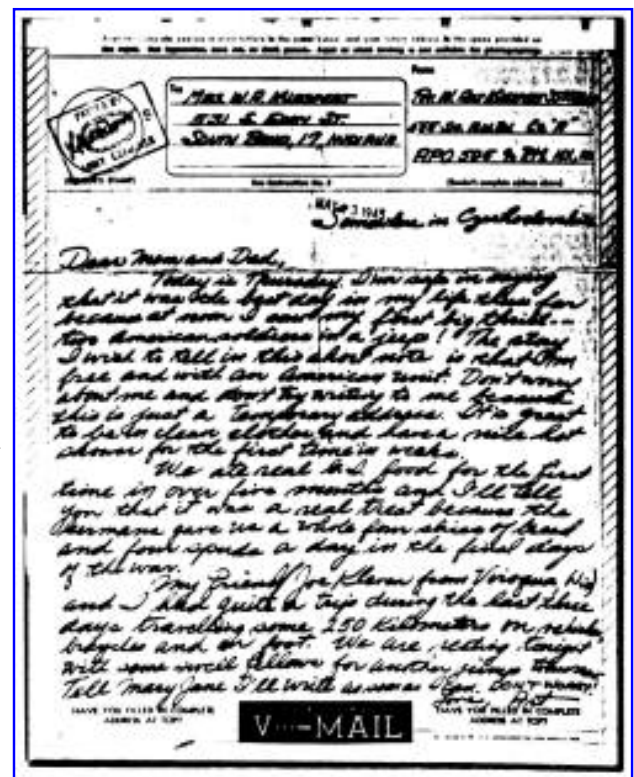 To
From
MRS W.R.
1531 S. EDDY ST.
SOUTH BEND, 17, INDIANA
PASSED BY
See Instruction No. 2
(Sender's complete address above)
Somewhere in Czechoslovakia
Dear Mom and Dad,
Today is Thursday. I'm safe in saying
that it was the best day in my life thus far
because at noon I saw my first big thrill --
two American soldiers in a jeep! The story
I wish to tell in this short note is that I'm
free and with an American unit. Don't worry
about me and don't try writing to me because
this is just a temporary address. It's great
to be in clean clothes and have a nice hot
shower for the first time in weeks.
We ate real G.I. food for the first
time in over five months and I'll tell
you that it was a real treat because the
Germans gave us a whole four slices of bread
and four spuds a day in the final days
of the war.
My friend Joe Kleven from Viroqua Wis
and I had quite a trip during the last three
days travelling some 250 kilometers on
bicycles and on foot. We are resting tonight
with some swell fellows for another jump
Tell Mary Jane I'll write as soon as I can. DON'T WORRY!
Love
HAVE YOU FILLED IN COMPLETE
ADDRESS AT TOP?
V···—MAIL
HAVE YOU FILLED IN COMPLETE
ADDRESS AT TOP?